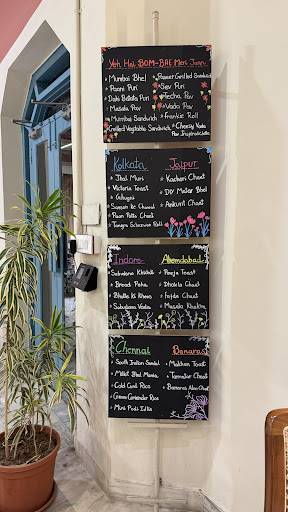 Yeh Hai BOM-BAE Meri Jaan
Mumbai Bhel
Paani Puri
Dahi Batata Puri
Masala Pav
Mumbai Sandwich
Grilled Vegetable Sandwich
Paneer Grilled Sandwich
Sev Puri
Vada Pav
Frankie Roll
Cheesy Vada
Pav
Kolkata
Jhal Muri
Victoria Toast
Ghugni
Paan Patta Chaat
Tangra Schezwan Roll
Jaipur
Kachori Chaat
DIY Matar Bhel
Ankurit Chaat
Indore
Sabudana Khichdi
Bread Poha
Bhutte Ki Khees
Sabudana Vada
Ahemdabad
Dhokla Chaat
Fafda Chaat
Masala Khakra
Chennai
South Indian Sandwich
Millet Bhel Mania
Curd Rice
Green Coriander Rice
Mini Podi Idlis
Banaras
Makhan Toast
Tamatar Chaat
Banaras Aloo Chaat